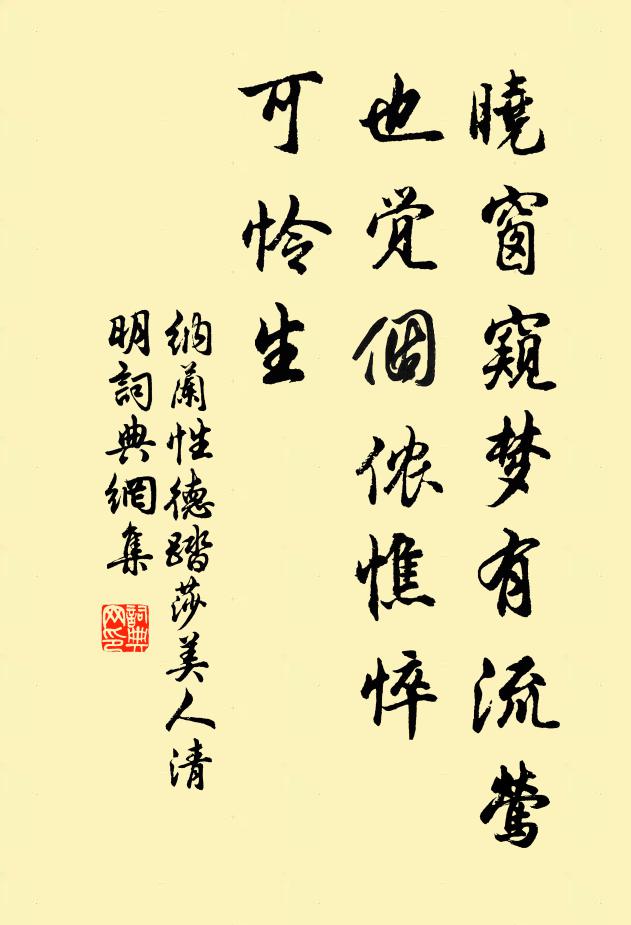 曉窗窺梦有流鶯
也觉個侬憔悴
可怜生
纳蘭性德踏莎美人清
明詞典網集
詞典网印